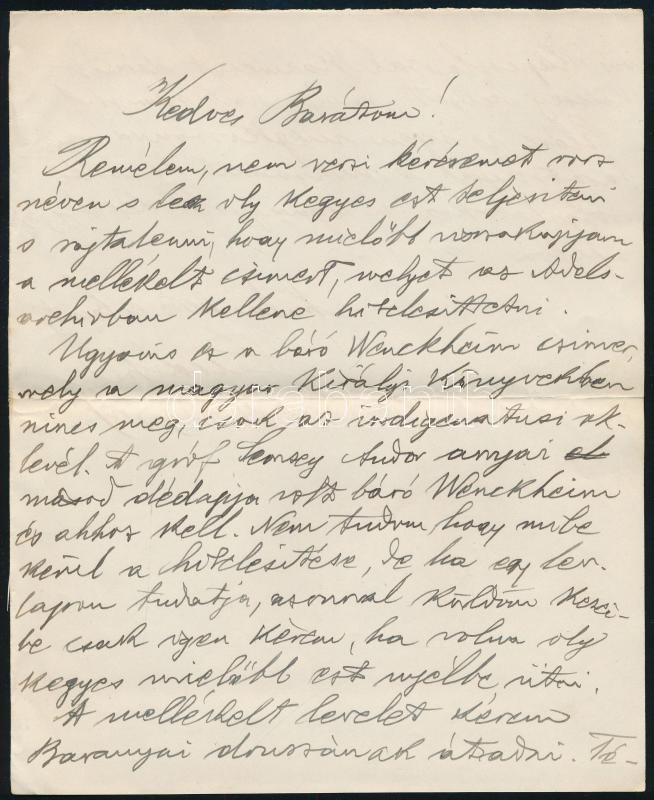 Kedves Barátom!
Remélem, nem veszi kérésemet rossz
néven s lesz oly kegyes ezt teljesíteni
s rajta lenni, hogy mielőbb visszakapjam
a mellékelt címert, melyet az Adels-
archivban kellene hitelesíttetni.
Ugyanis ez a báró Wenckheim címer,
mely a magyar Királyi Könyvekben
nincs meg, csak az indigenatusi ok-
levél. A gróf Semsey Andor anyai
másod dédapja volt báró Wenckheim
és ahhoz kell. Nem tudom, hogy mibe
kerül a hitelesítése, de ha egy lev.
lapon tudatja, azonnal küldöm kezei-
be csak igen kérem, ha volna oly
kegyes mielőbb ezt nyélbe ütni.
A mellékelt levelet kérem
Baranyai átadni.
darabanth